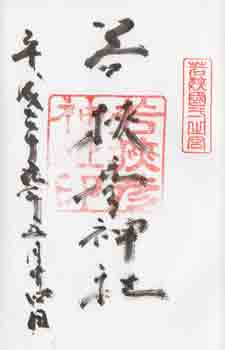 若狭國一之宮
若狭彦神社
若狭彦神社印
平成二十九年五月十四日